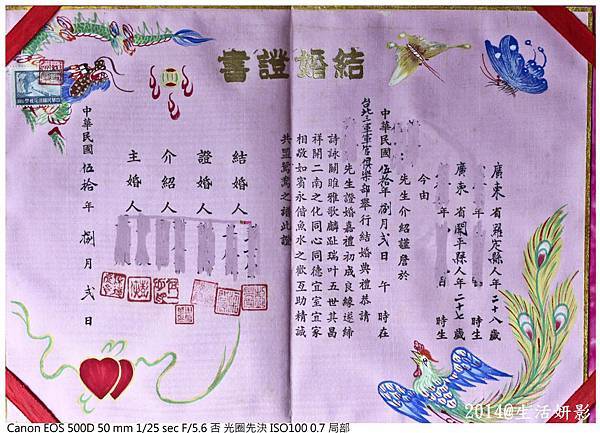 結婚證書
廣東省羅定縣人年二十八歲
年 月 日 時生
廣東省開平縣人年二十七歲
年 月 日 時生
今由
先生介紹謹詹於
中華民國伍拾年捌月貳日 午 時在
台北三軍軍官俱樂部舉行結婚典禮恭請
先生證婚嘉禮初成良緣遂締
詩詠關雎雅歌麟趾瑞叶五世其昌
祥開二南之化同心同德宜室宜家
相敬如賓永偕魚水之歡互助精誠
共盟鴛鴦之譜此證
結婚人
證婚人
介紹人
主婚人
中華民國伍拾年捌月貳日
2014@生活妍影
Canon EOS 500D 50 mm 1/25 sec F/5.6 否 光圈先決 ISO100 0.7 局部